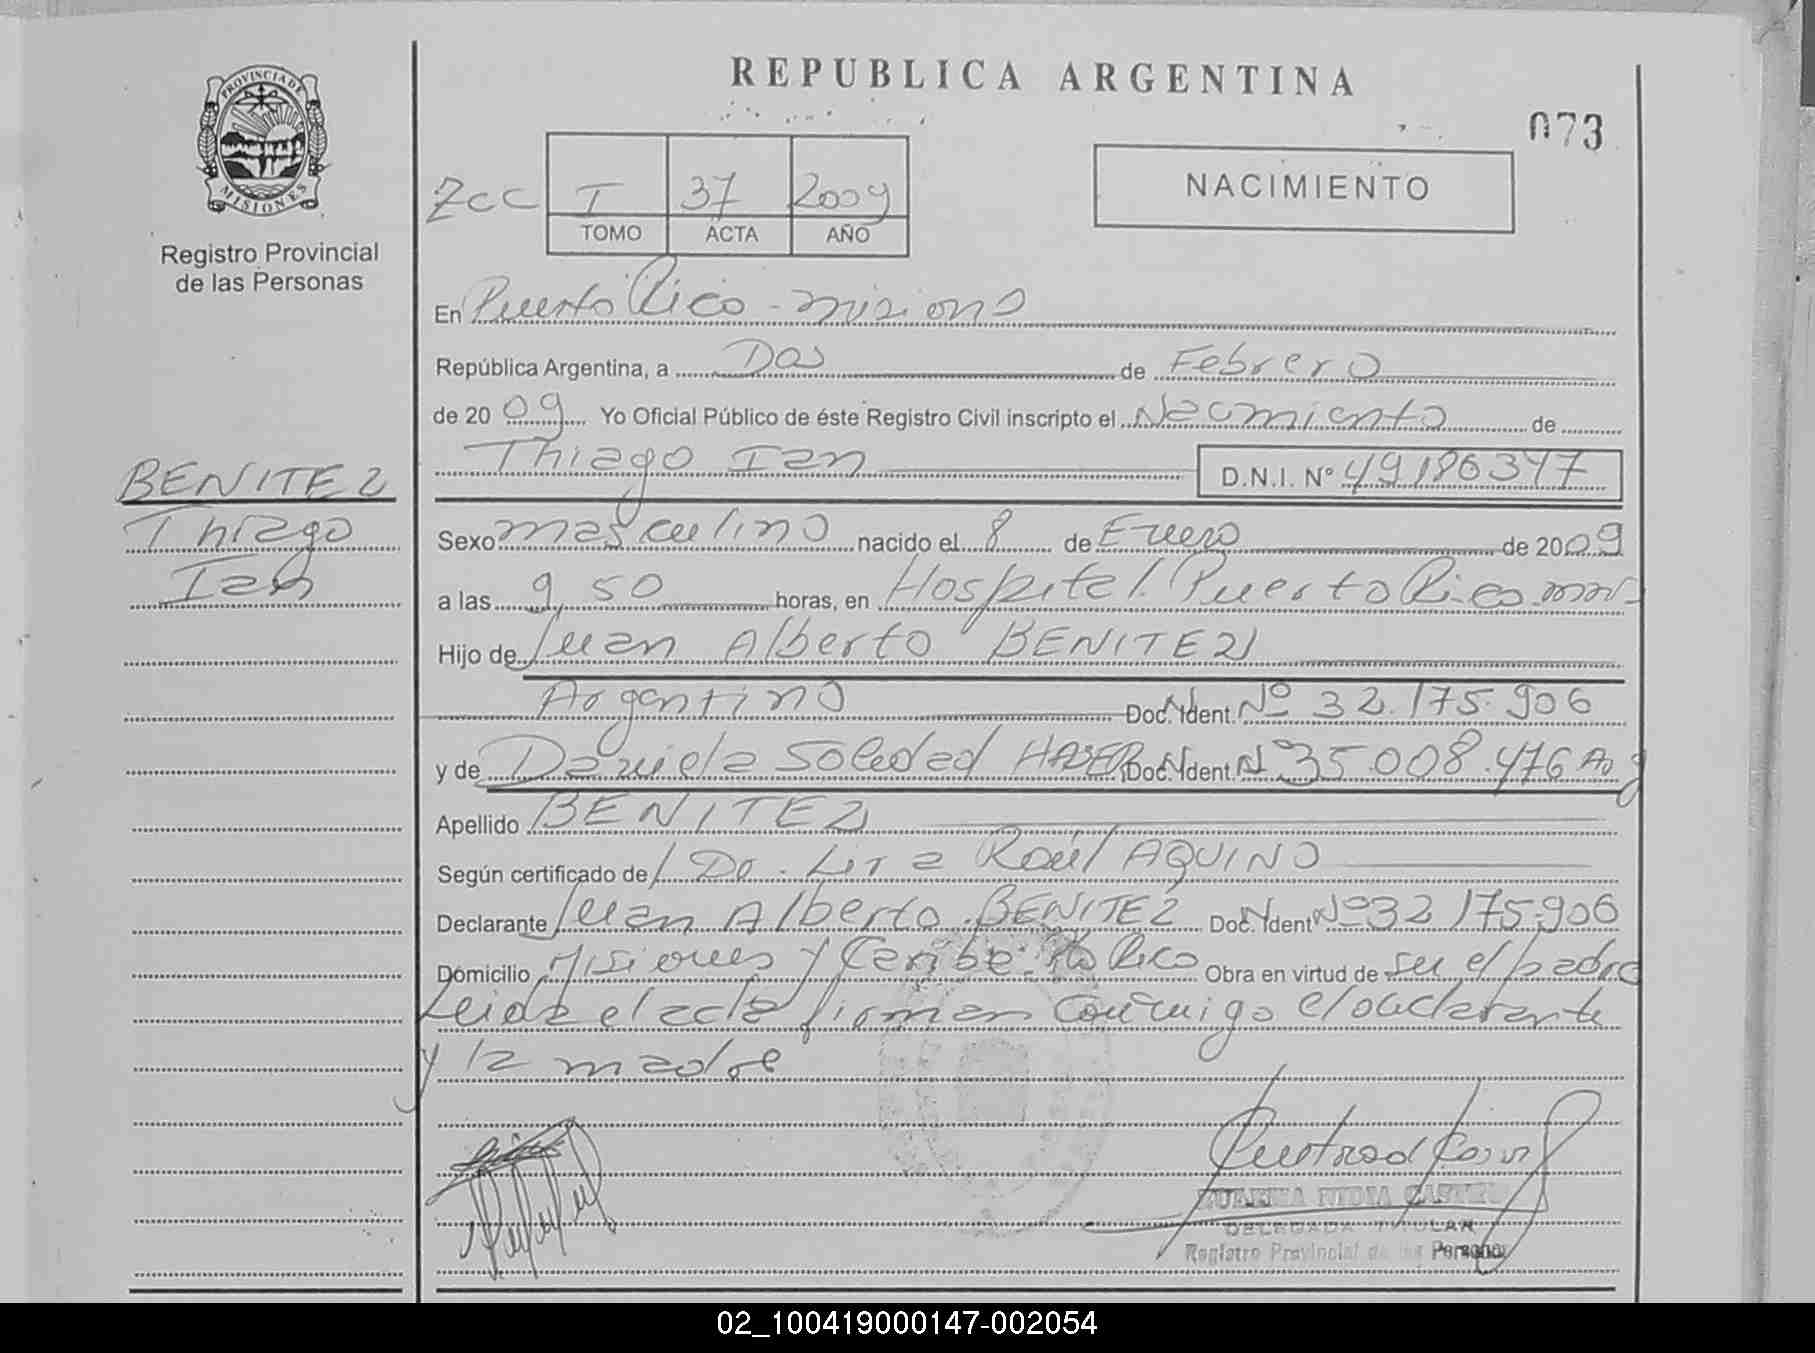 REPUBLICA ARGENTINA
073
PROVINCIA DE
MISIONES
Registro Provincial
de las Personas
Zcc I 37 2009
TOMO ACTA AÑO
NACIMIENTO
En Puerto Rico - Misiones
República Argentina, a Dos de Febrero
de 2009 Yo Oficial Público de éste Registro Civil inscripto el Nacimiento de
Thiago Ian D.N.I. Nº 49186347
BENITEZ
Thiago
Ian
Sexo masculino nacido el 8 de Enero de 2009
a las 9,50 horas, en Hospital Puerto Rico
Hijo de Juan Alberto BENITEZ
Argentino Doc. Ident. Nº 32.175.906
y de Daniela Soledad Doc. Ident. Nº 35.008.476
Apellido BENITEZ
Según certificado de Raúl AQUINO
Declarante Juan Alberto BENITEZ Doc. Ident Nº 32 175.906
Domicilio Misiones y Caribe Pto Rico Obra en virtud de ser el padre
Leida el acta firman conmigo el declarante
y la madre
DELEGADA TITULAR
Registro Provincial de las Personas
02_100419000147-002054